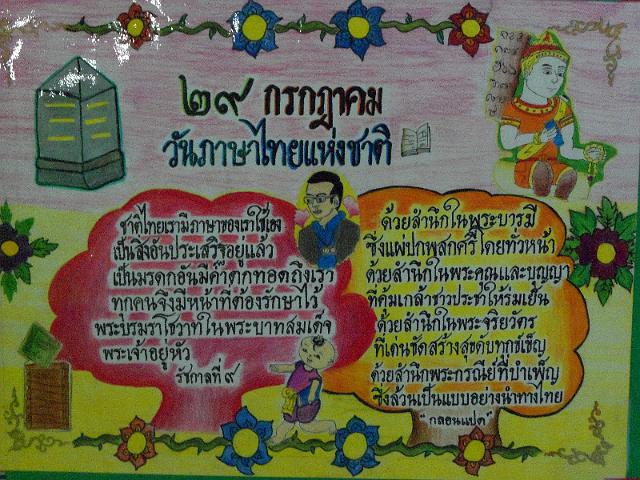 ๒๙ กรกฎาคม
วันภาษาไทยแห่งชาติ
ชาติไทยเรามีภาษาของเราใช้เอง
เป็นสิ่งอันประเสริฐอยู่แล้ว
เป็นมรดกอันมีค่าตกทอดถึงเรา
ทุกคนจึงมีหน้าที่ต้องรักษาไว้
พระบรมราโชวาทในพระบาทสมเด็จ
พระเจ้าอยู่หัว
รัชกาลที่ ๙
ด้วยสำนึกในพระบารมี
ซึ่งแผ่ปกพสกศรีโดยทั่วหน้า
ด้วยสำนึกในพระคุณและบุญญา
ที่คุ้มเกล้าชาวประชาให้ร่มเย็น
ด้วยสำนึกในพระจริยวัตร
ที่เด่นชัดสร้างสุขดับทุกข์เข็ญ
ด้วยสำนึกพระกรณีย์ที่บำเพ็ญ
ซึ่งล้วนเป็นแบบอย่างนำทางไทย
"กลอนแปด"